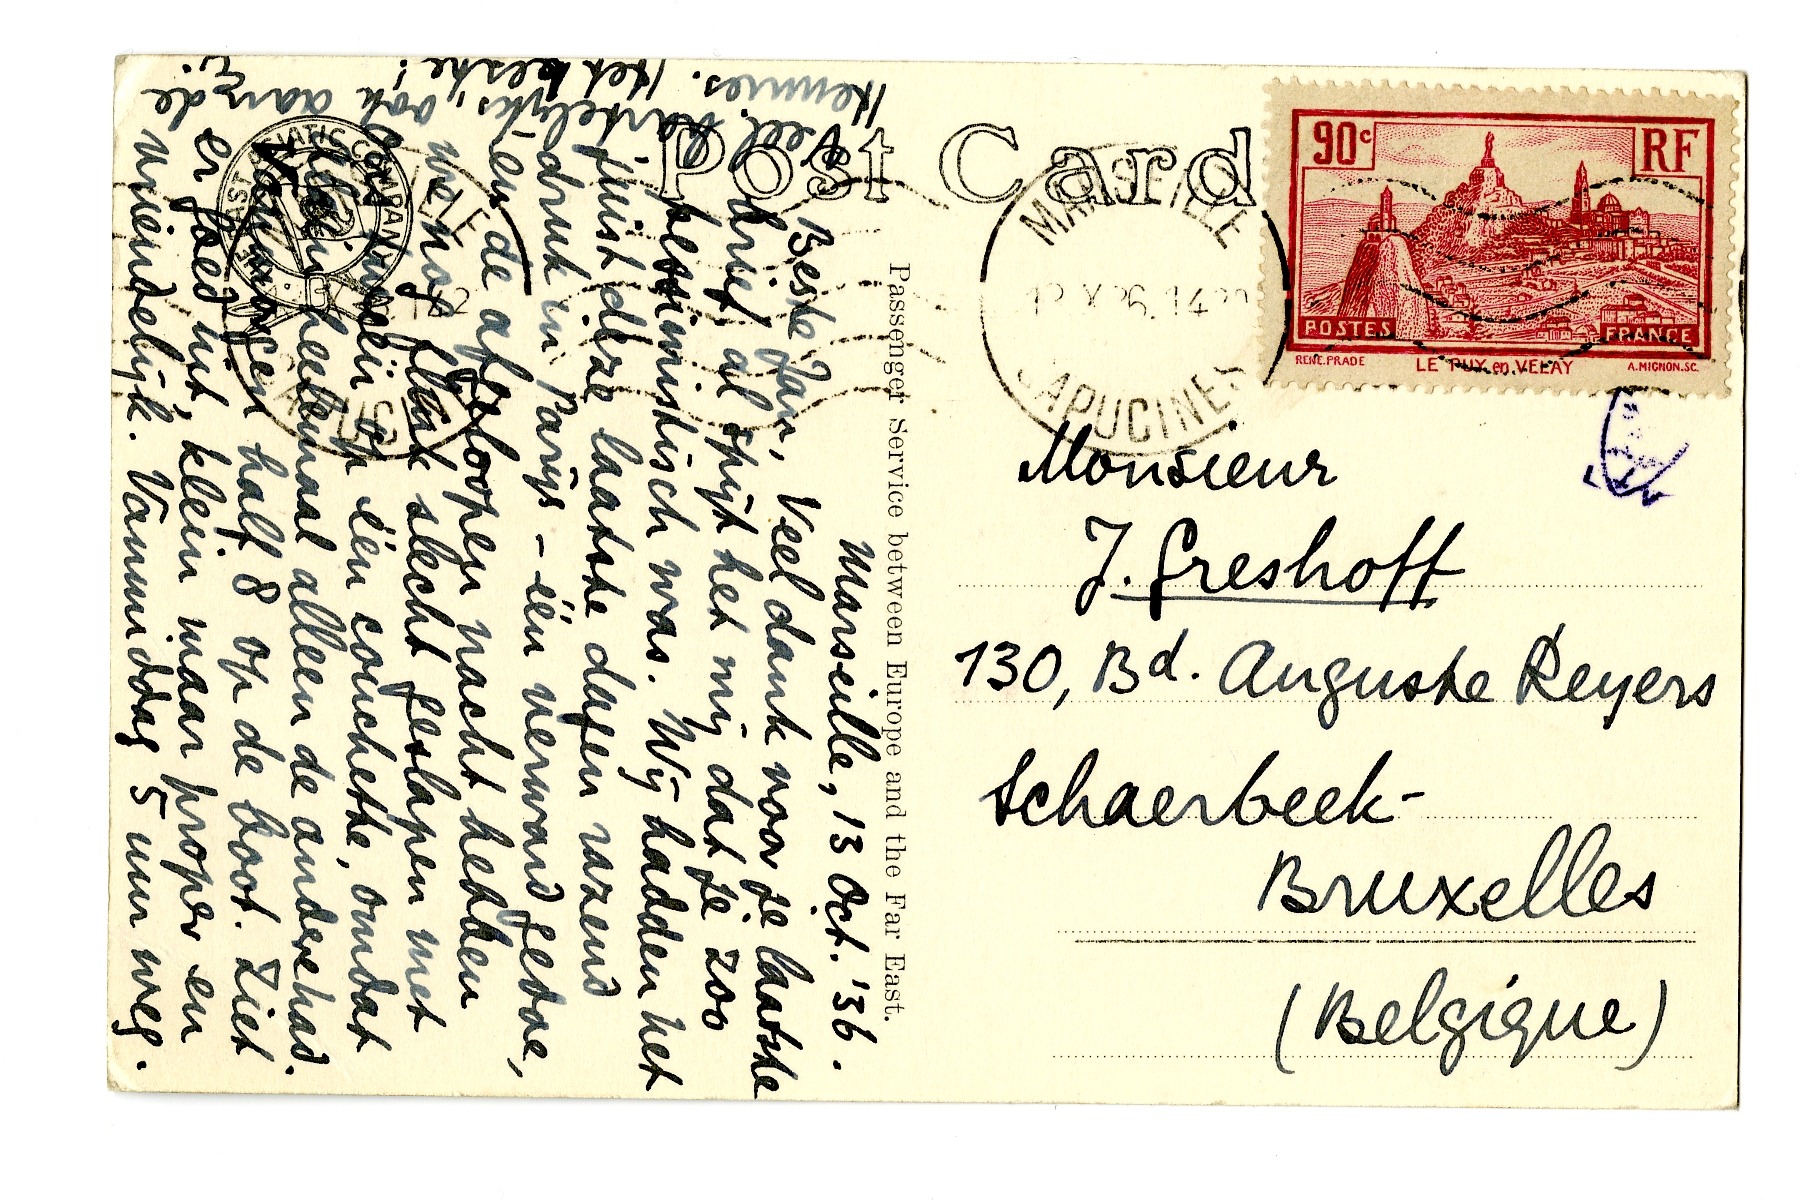 Post Card
Passenger Service between Europe and the Far East.
EAST ASIATIC COMPANY
MARSEILLE
13 X 36. 14
CAPUCINES
90c RF
POSTES FRANCE
RENE. PRADE LE PUY en VELAY A. MIGNON. SC.
Monsieur
J. Greshoff
130, Bd. Auguste Reyers
Schaerbeek-
Bruxelles
(Belgique)
Marseille, 13 Oct. '36.
Beste Jan, Veel dank voor je laatste
brief, al spijt het mij dat je zoo
pessimistisch was. Wij hadden het
juist deze laatste dagen razend
druk in Parijs - één verward gedoe,
en de afgeloopen nacht hebben
we nog flink slecht geslapen met
op één couchette, omdat
heelemaal alleen de andere had.
half 8 op de boot. Ziet
er goed uit, klein maar proper en
vriendelijk. Vanmiddag 5 uur weg.
Veel hartelijks, ook aan de
Hennies. Het beste!